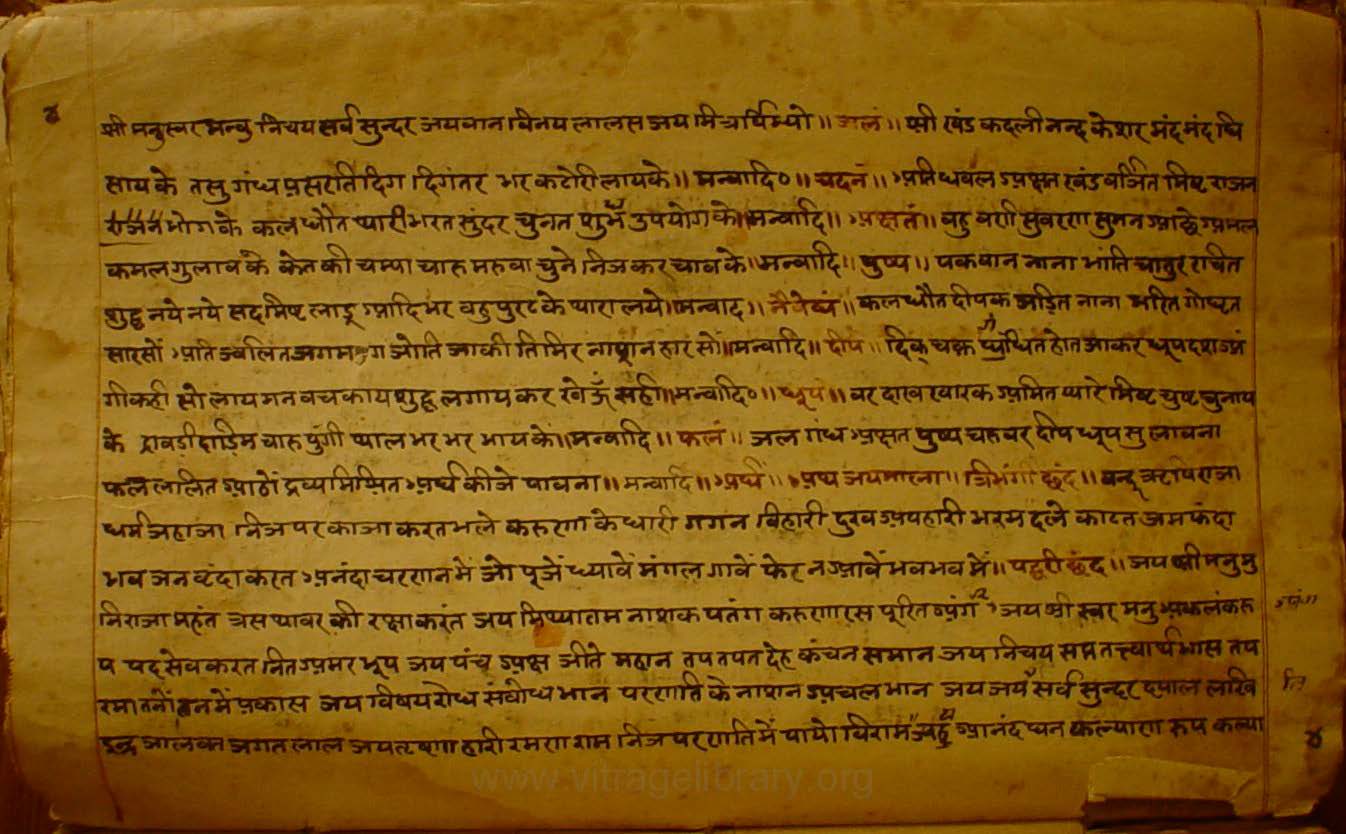 ४
श्री मनुस्वर मन्वु निचय सर्व सुन्दर जयवान विनय लालस जय मित्रर्षिभ्यो ॥ जलं ॥ श्री खंड कदली नन्द केशर मंद मंद घि
साय के तसु गंध प्रसरति दिग दिगंतर भर कटोरी लाय के ॥ मन्वादि० ॥ चंदनं ॥ अति धवल अक्षत खंड वर्जित मिष्ट राजन
भोग के कलधौत थारी भरत सुंदर चुनत शुभ उपयोग के ॥ मन्वादि ॥ अक्षतं ॥ बहु वर्ण सुवरण सुमन आछे अमल
कमल गुलाब के केतकी चम्पा चारु मरुवा चुने निज कर चाव के ॥ मन्वादि ॥ पुष्प ॥ पकवान नाना भांति चातुर रचित
शुद्ध नये नये सद मिष्ट लाडू आदि भर बहु पुरट के थारा लये ॥ मन्वाद ॥ नैवेद्यं ॥ कलधौत दीपक जड़ित नाना भरित गोघृत
सारसों अति ज्वलित जगमग जोति जाकी तिमिर नाशन हार सों ॥ मन्वादि ॥ दीपं ॥ दिक् चक्र होत जाकर धूप दश अं
गी कही सो लाय मन वच काय शुद्ध लगाय कर खेऊँ सही ॥ मन्वादि० ॥ धूपं ॥ वर दाख खारक अमित प्यारे मिष्ट चुष्ट चुनाय
के द्रावड़ी दाड़िम चारु पुंगी थाल भर भर भाय के ॥ मन्वादि ॥ फलं ॥ जल गंध अक्षत पुष्प चरु वर दीप धूप सु लावना
फल ललित आठों द्रव्य मिश्रित अर्घ कीजे पावना ॥ मन्वादि ॥ अर्घं ॥ अथ जयमाला ॥ त्रिभंगी छंद ॥ वन्दू ऋषिराजा
धर्म जहाजा निज पर काजा करत भले करुणा के धारी गगन विहारी दुख अपहारी भरम दले काटत जम फंदा
भव जन वृंदा करत अनंदा चरणन में जो पूजें ध्यावें मंगल गावें फेर न आवें भव भव में ॥ पद्धरी छंद ॥ जय श्री मनु मु
निराजा महंत त्रस थावर की रक्षा करंत जय मिथ्यातम नाशक पतंग करुणारस पूरित अंग जय श्री स्वर मनु अकलंक रू
प पद सेव करत नित अमर भूप जय पंच अक्ष जीते महान तप तपत देह कंचन समान जय निचय सप्त तत्त्वार्थ भास तप
रमा तनों तन में प्रकास जय विषय रोध संबोध भान परणति के नाशन अचल भान जय जय सर्व सुन्दर दयाल लखि
इन्द्र जालवत जगत जाल जय तृष्णा हारी रमण राम निज परणति में पायो विराम आनंद घन कल्याण रूप कल्या
४
www.vitragelibrary.org